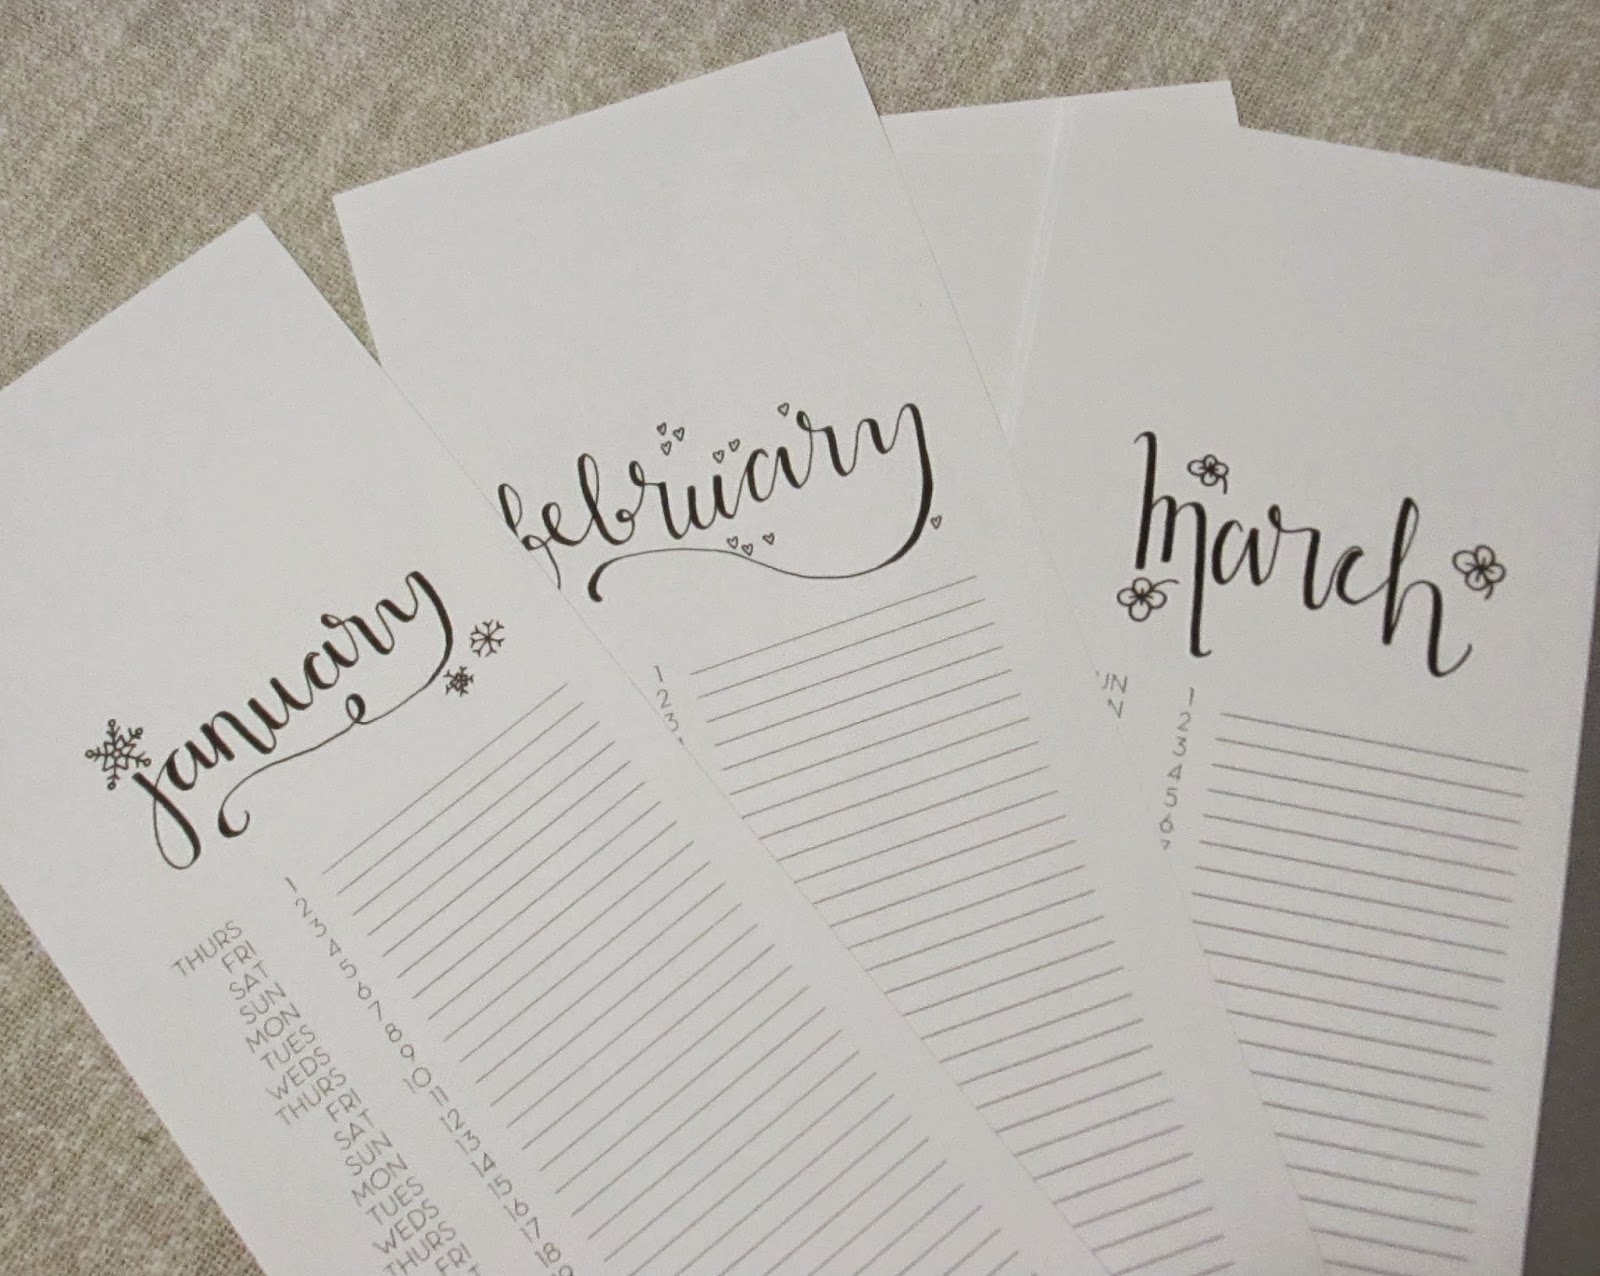 january
THURS 1
FRI 2
SAT 3
SUN 4
MON 5
TUES 6
WEDS 7
THURS 8
FRI 9
SAT 10
SUN 11
MON 12
TUES 13
WEDS 14
THURS 15
FRI 16
17
18
february
1
2
3
march
UN 1
N 2
3
4
5
6